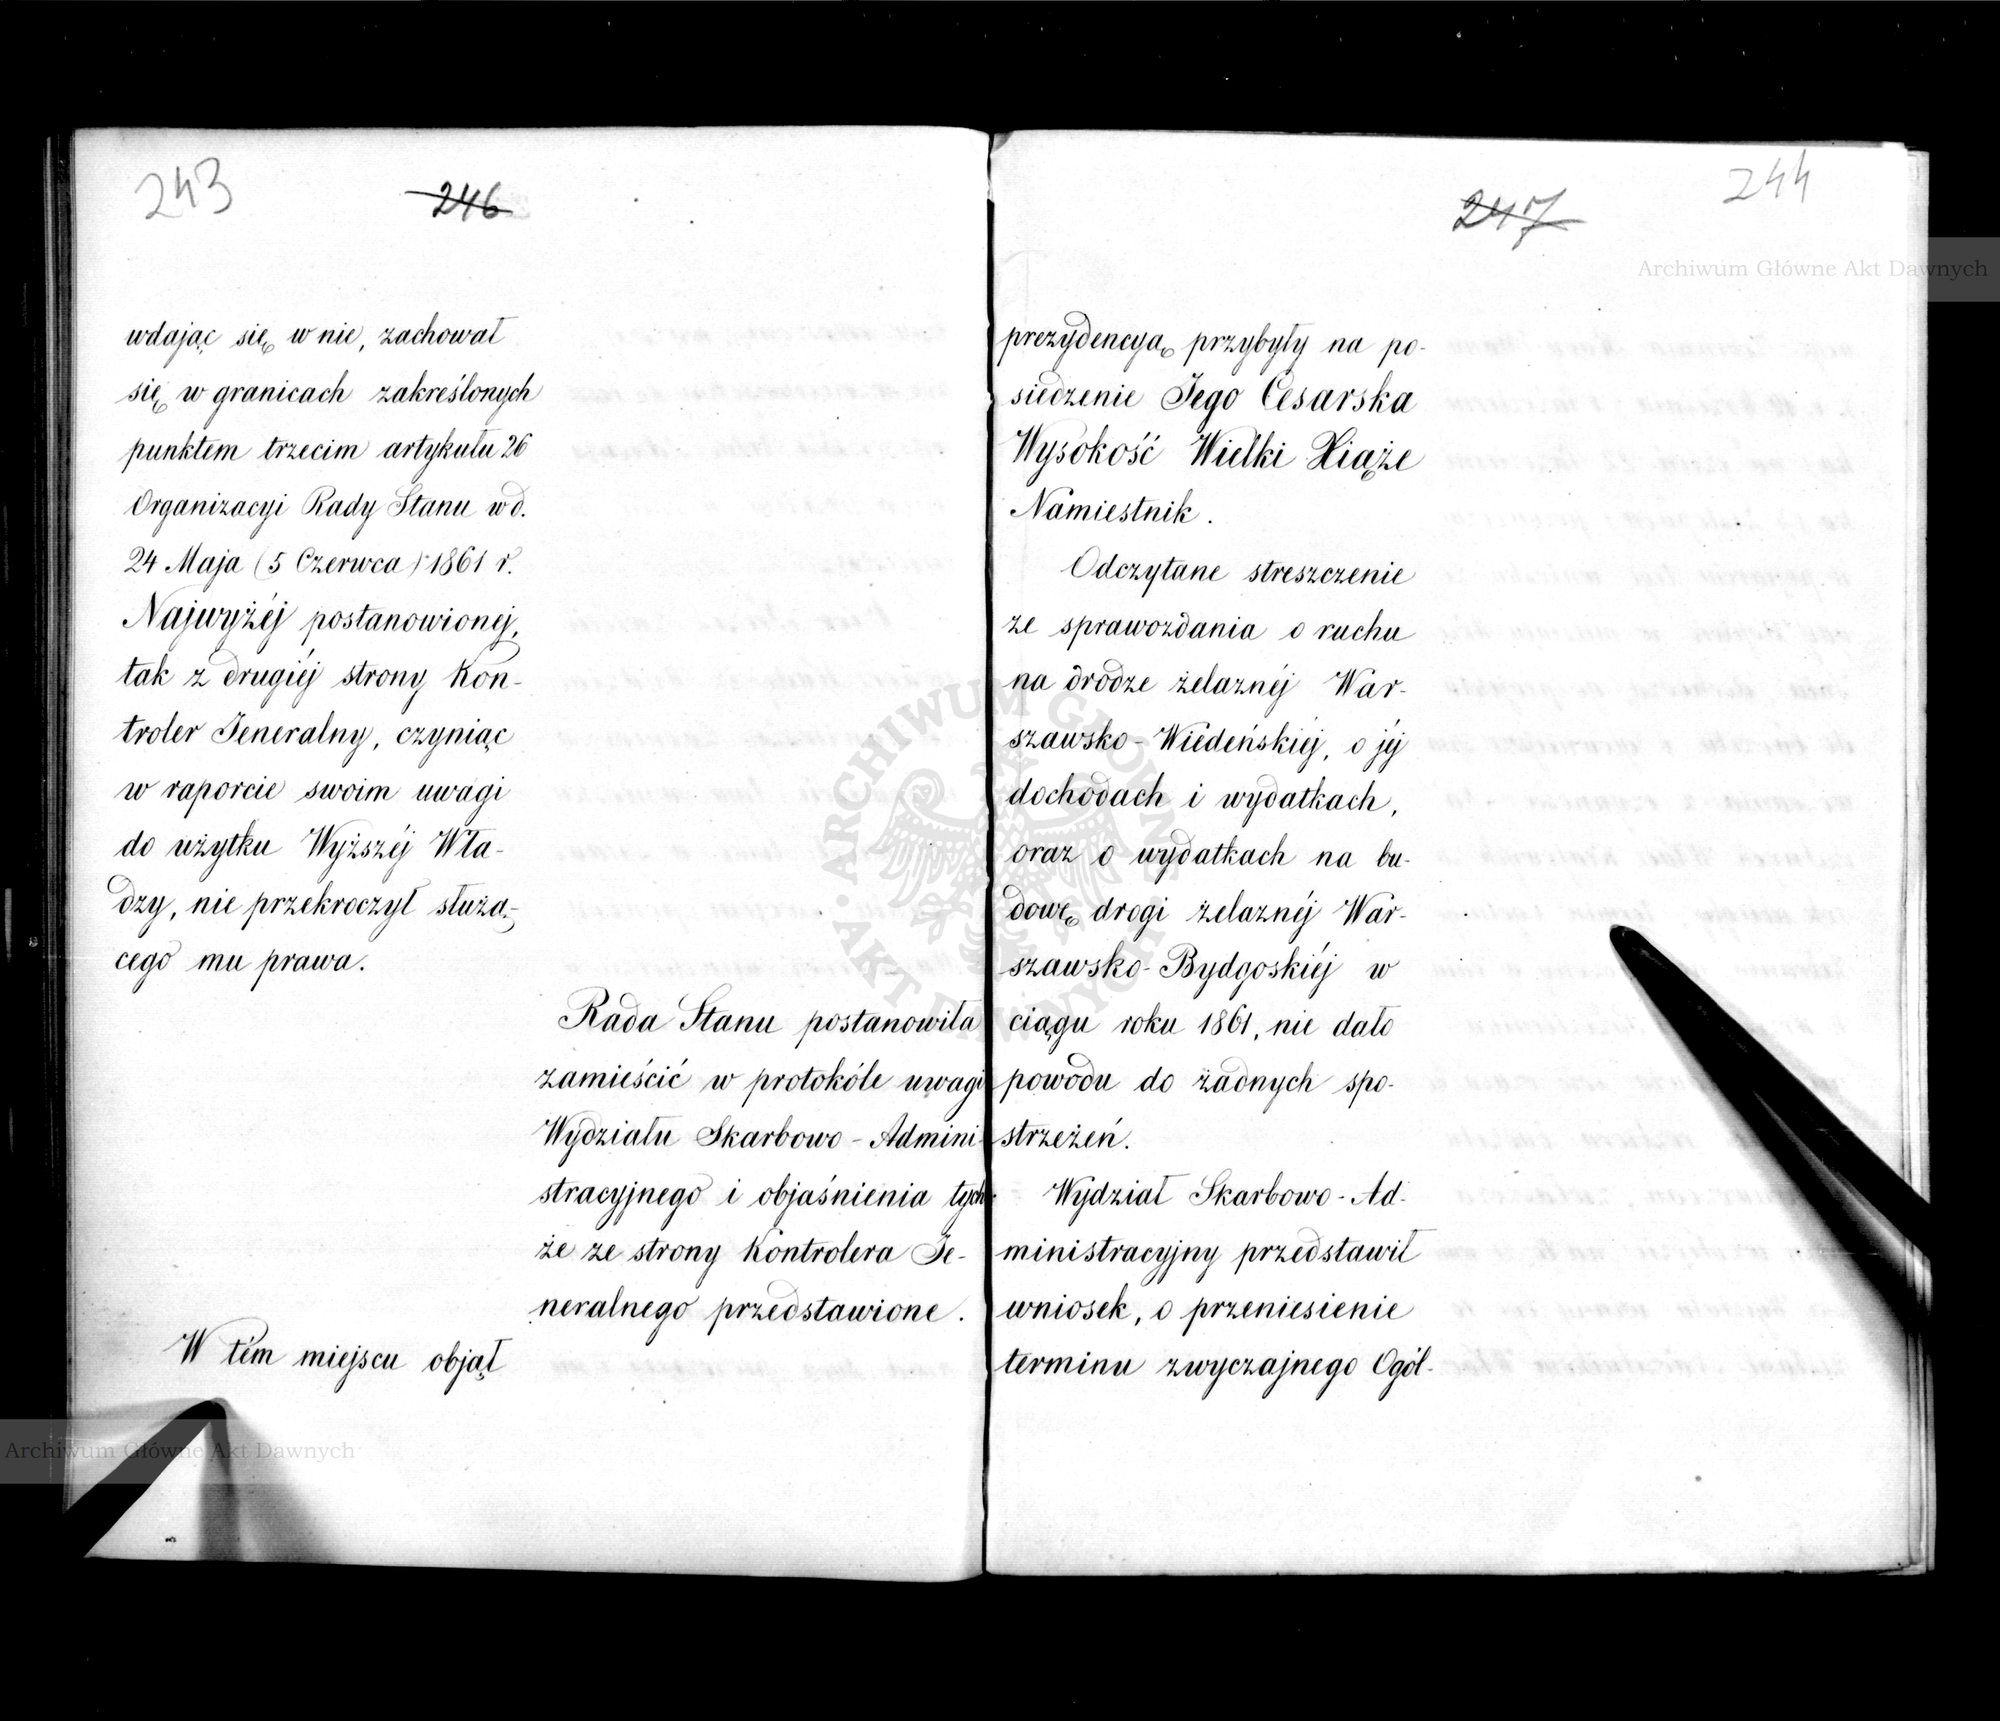 243
246
wdając się w nie, zachował
się w granicach zakreślonych
punktem trzecim artykułu 26
Organizacyi Rady Stanu w d.
24 Maja (5 Czerwca) 1861 r.
Najwyżéj postanowionej,
tak z drugiéj strony Kon-
troler Jeneralny, czyniąc
w raporcie swoim uwagi
do użytku Wyższéj Wła-
dzy, nie przekroczył służą-
cego mu prawa.
Rada Stanu postanowiła
zamieścić w protokóle uwagi
Wydziału Skarbowo-Admini-
stracyjnego i objaśnienia tych-
że ze strony Kontrolera Je-
neralnego przedstawione.
W tém miejscu objął
244
247
prezydencyą przybyły na po-
siedzenie Jego Cesarska
Wysokość Wielki Xiąże
Namiestnik.
Odczytane streszczenie
ze sprawozdania o ruchu
na drodze żelaznéj War-
szawsko-Wiedeńskiéj, o jéj
dochodach i wydatkach,
oraz o wydatkach na bu-
dowę drogi żelaznéj War-
szawsko-Bydgoskiéj w
ciągu roku 1861, nie dało
powodu do żadnych spo-
strzeżeń.
Wydział Skarbowo-Ad-
ministracyjny przedstawił
wniosek, o przeniesienie
terminu zwyczajnego Ogól-
Archiwum Główne Akt Dawnych
Archiwum Główne Akt Dawnych
ARCHIWUM GŁÓWNE
AKT DAWNYCH